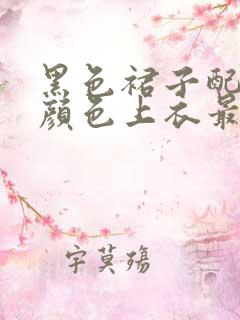 黑色裙子配
顏色上衣最
宇莫殤